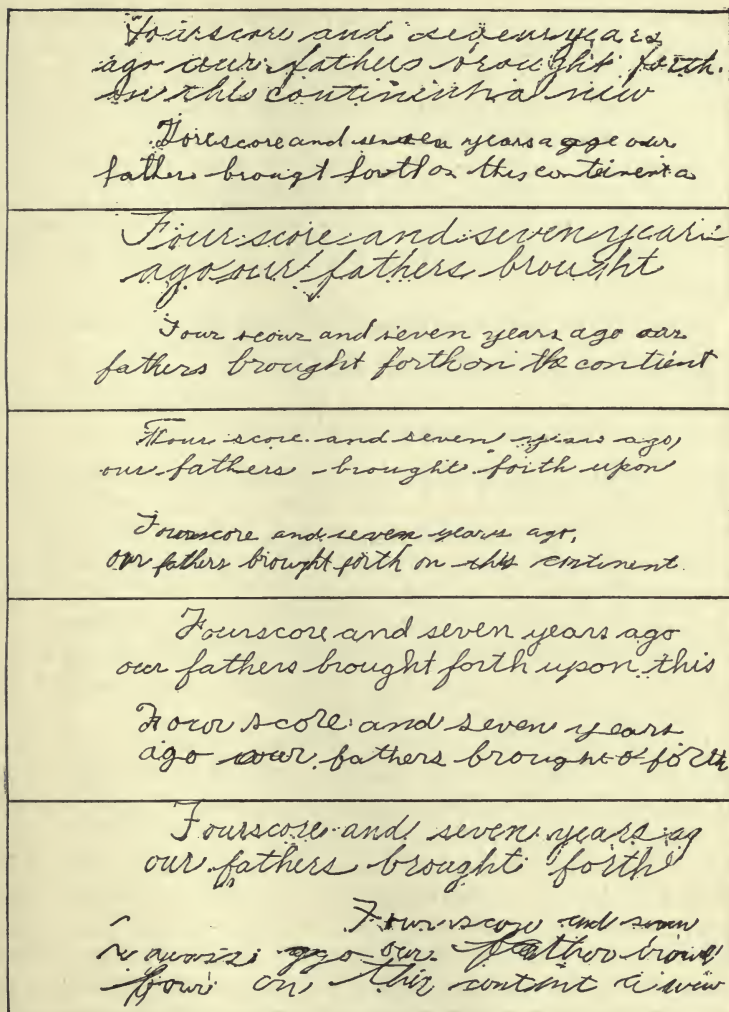 Fourscore and seven years
ago our fathers brought forth.
on this continent a new
Forescore and seven years agoe our
fathers brougt forth on this conteinent a
Four score and seven years
ago our fathers brought
Four scour and seven years ago our
fathers brought forth on the contient
Four score and seven years ago,
our fathers brought forth upon
Fourscore and seven years ago,
our fathers brought forth on this continent
Fourscore and seven years ago
our fathers brought forth upon this
Four score and seven years
ago our fathers brought forth
Fourscore and seven years ag
our fathers brought forth
Four score and seven
ago our father
on this contint a new